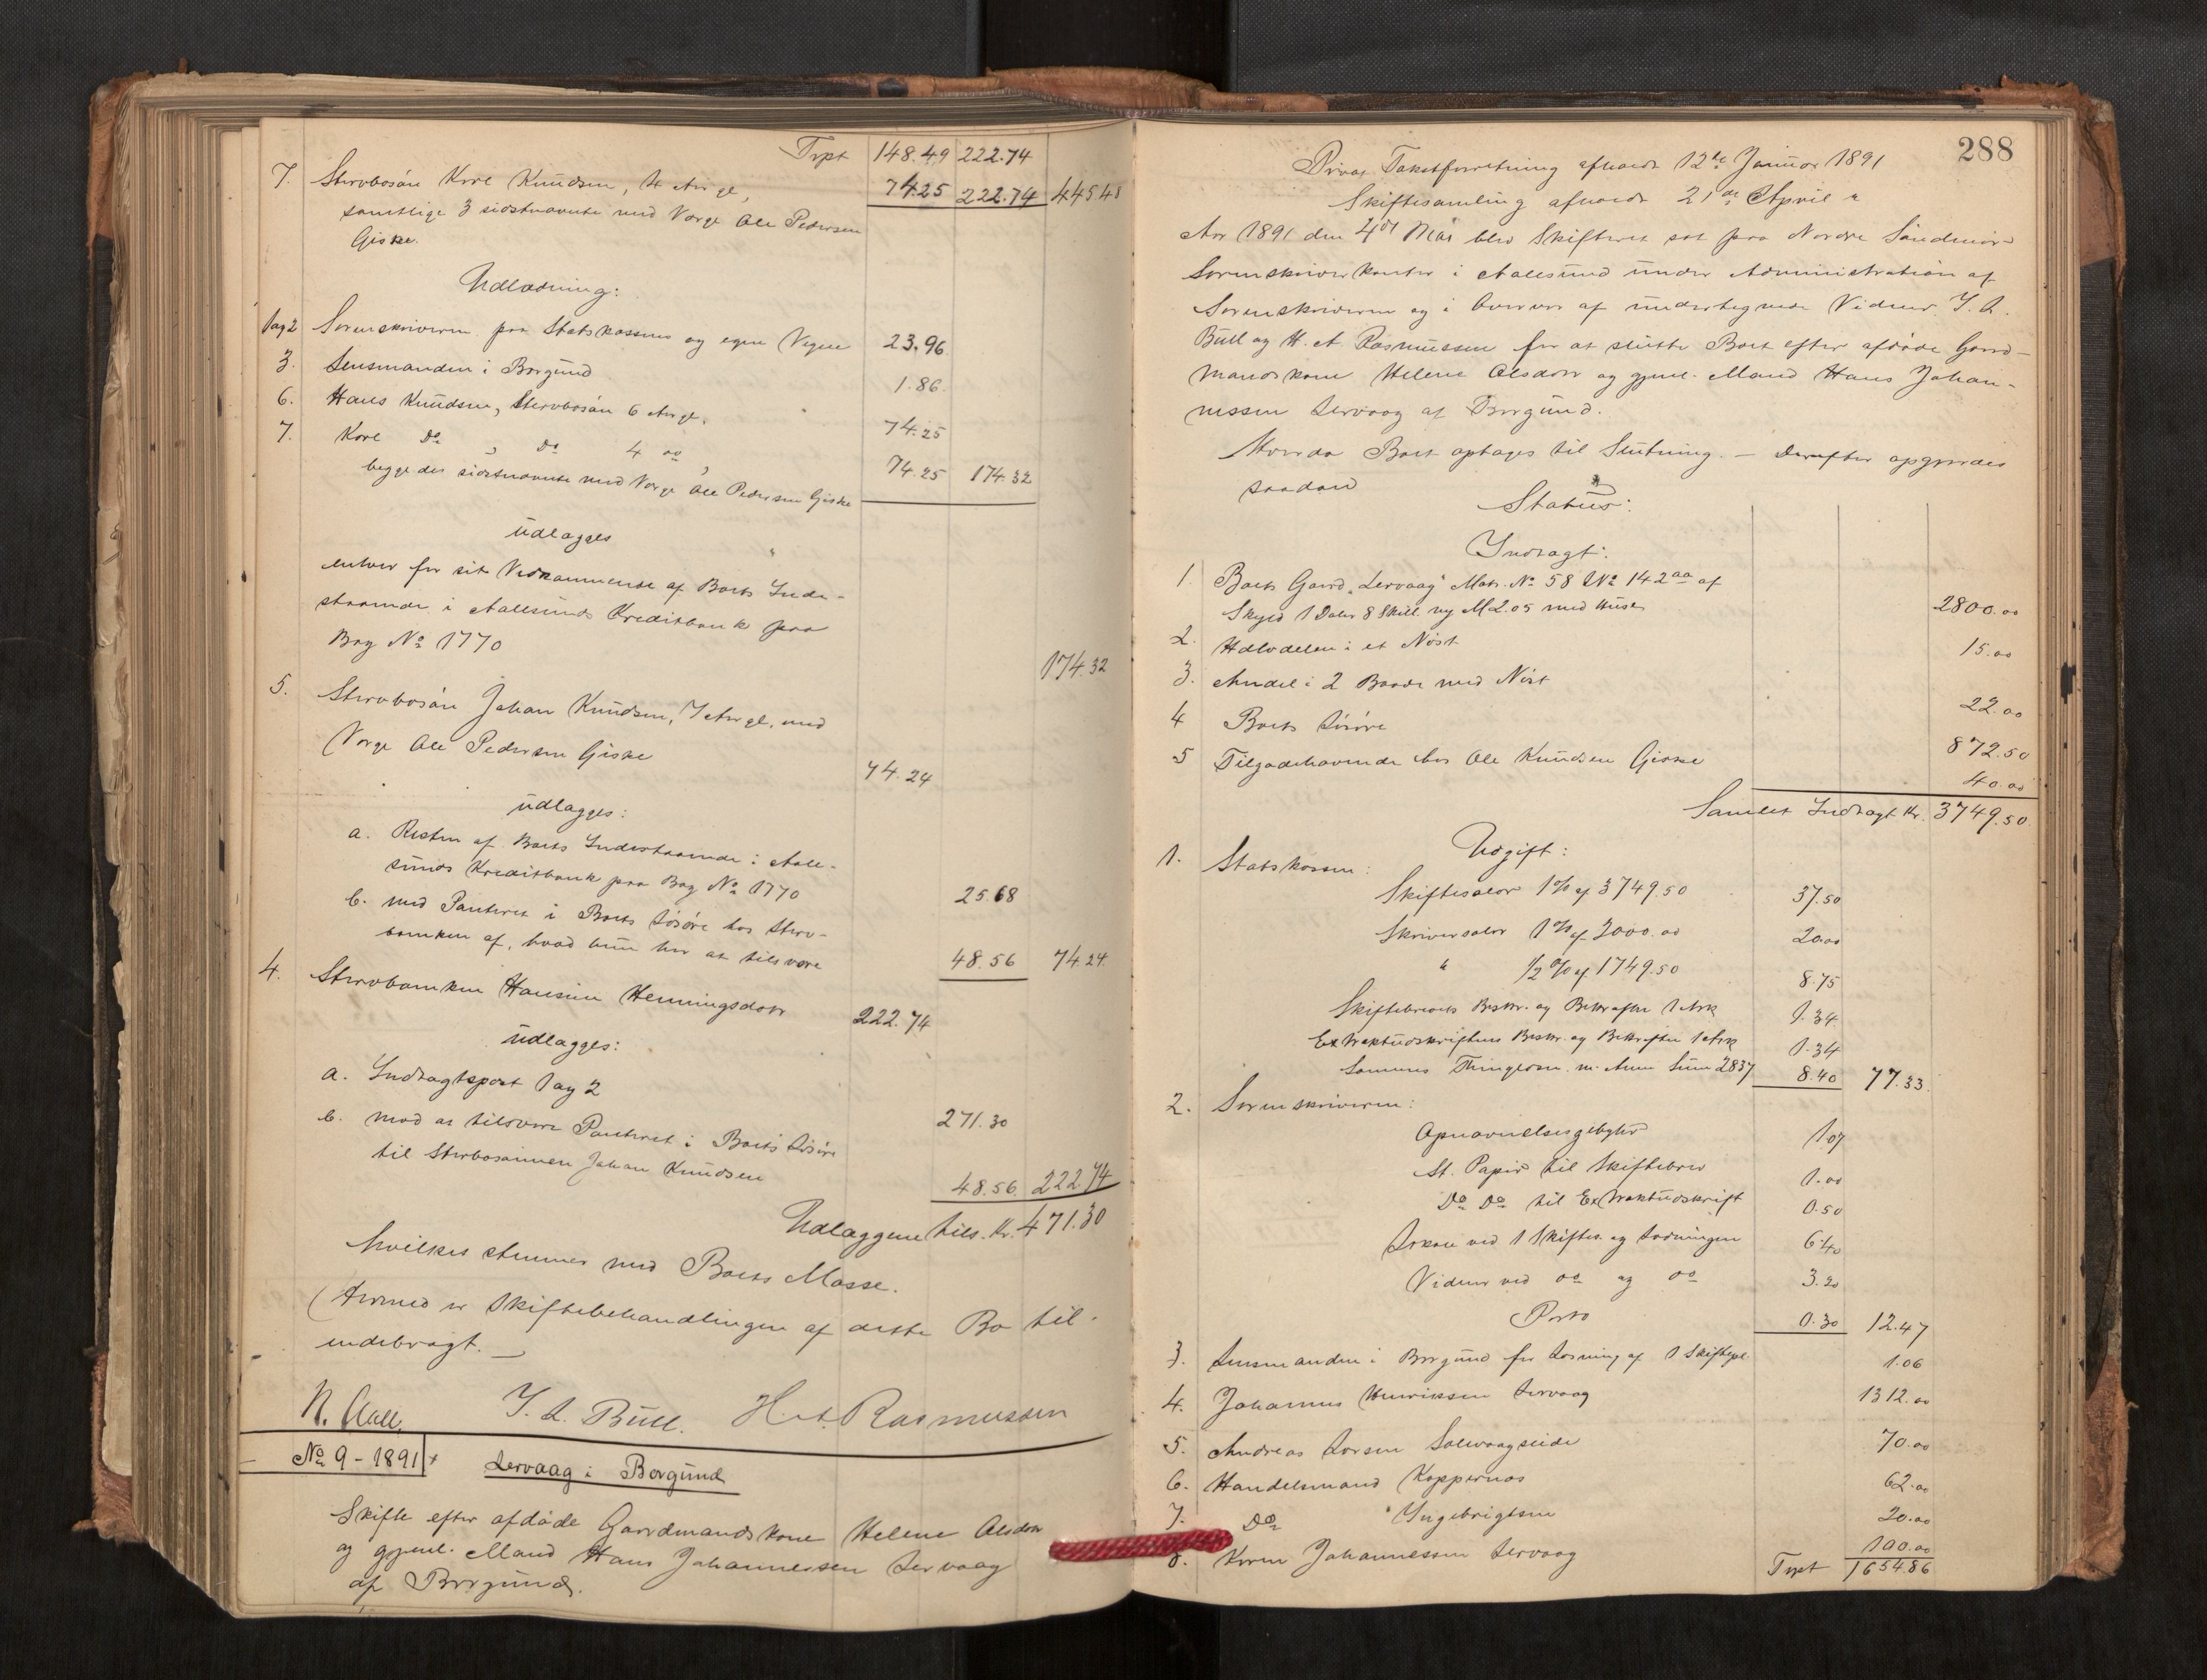 Trpt 148.49 222.74
7. Stervbosøn Karl Knudsen, 4 Aar gl, 74.25 222.74 445.48
samtlige 3 sidstnævnte med Værge Ole Pedersen
Giske.
Udlodning:
1 og 2 Sorenskriveren paa Statskassens og egne Vegne 23.96
3. Lensmanden i Borgund 1.86
6. Hans Knudsen, Stervbosøn 6 Aar gl. 74.25
7. Karl Do, Do 4 do, 74.25 174.32
begge de sidstnævnte med Værge Ole Pedersen Giske
udlægges
enhver for sit Vedkommende af Boets Inde-
staaende i Aalesunds Kreditbank paa
Bog No 1770 174.32
5. Stervbosøn Johan Knudsen, 7 Aar gl. med
Værge Ole Pedersen Giske 74.24
udlægges:
a. Resten af Boets Indestaaende i Aale-
sunds Kreditbank paa Bog No 1770 25.68
b. med Panteret i Boets Løsøre hos Sterv-
boenken af, hvad hun har at tilsvare 48.56 74.24
4. Stervboenken Hansine Henningsdatr 222.74
udlægges:
a. Indtægtspost 1 og 2 271.30
b. mod at tilsvare Panteret i Boets Løsøre
til Stervbosønnen Johan Knudsen 48.56 222.74
Udlæggene tils. Kr. 471.30
hvilket stemmer med Boets Masse.
Hermed er Skiftebehandlingen af dette Bo til-
endebragt. —
N. Aall. I. L. Bull. H. A. Rasmussen
No 9 - 1891 Lervaag i Borgund
Skifte efter afdøde Gaardmandskone Helene Olsdatr
og gjenl. Mand Hans Johannessen Lervaag
af Borgund.
288
Privat Takstforretning afholdt 12te Januar 1891
Skiftesamling afholdt 21de April "
Aar 1891 den 4de Mai blev Skifteret sat paa Nordre Søndmørs
Sorenskriverkontor i Aalesund under Administration af
Sorenskriveren og i Overvær af undertegnede Vidner I. L.
Bull og H. A. Rasmussen for at slutte Boet efter afdøde Gaard-
mandskone Helene Olsdatr og gjenl. Mand Hans Johan-
nessen Lervaag af Borgund.
Hvorda Boet optages til Slutning. — Derefter opgjordes
saadan
Status:
Indtægt:
1. Boets Gaard "Lervaag" Matr. No 58 LNo 142aa af
Skyld 1 Daler 8 Skill. ny M 2.05 med Huse 2800.00
2. Halvdelen i et Nøst 15.00
3. Andel i 2 Baade med Nøst 22.00
4 Boets Løsøre 872.50
5 Tilgodehavende hos Ole Knudsen Giske 40.00
Samlet Indtægt Kr. 3749.50
Udgift:
1. Statskassen:
Skiftesalær 1% af 3749.50 37.50
Skriversalær 1% af 2000.00 20.00
" 1/2% af 1749.50 8.75
Skiftebrevets Beskr. og Bekræftn 1 Ark 1.34
Extraktudskriftens Beskr. og Bekræftn 1 Ark 1.34
Sammes Thinglæsn. m. Anm Sum 2837 8.40 77.33
2. Sorenskriveren:
Opnævnelsesgebyhr 1.07
St. Papir til Skiftebrev 1.00
Do Do til Extraktudskrift 0.50
Lokale ved 1 Skiftes. og Lodningen 6.40
Vidner ved do og do 3.20
Porto 0.30 12.47
3. Lensmanden i Borgund for Læsning af 1 Skiftepl. 1.06
4. Johannes Henriksen Lervaag 1312.00
5. Andreas Larsen Solevaagseide 70.00
6. Handelsmand Koppernæs 62.00
7. Do Ingebrigtsen 20.00
8. Karen Johannessen Lervaag 100.00
Trpt 1654.86